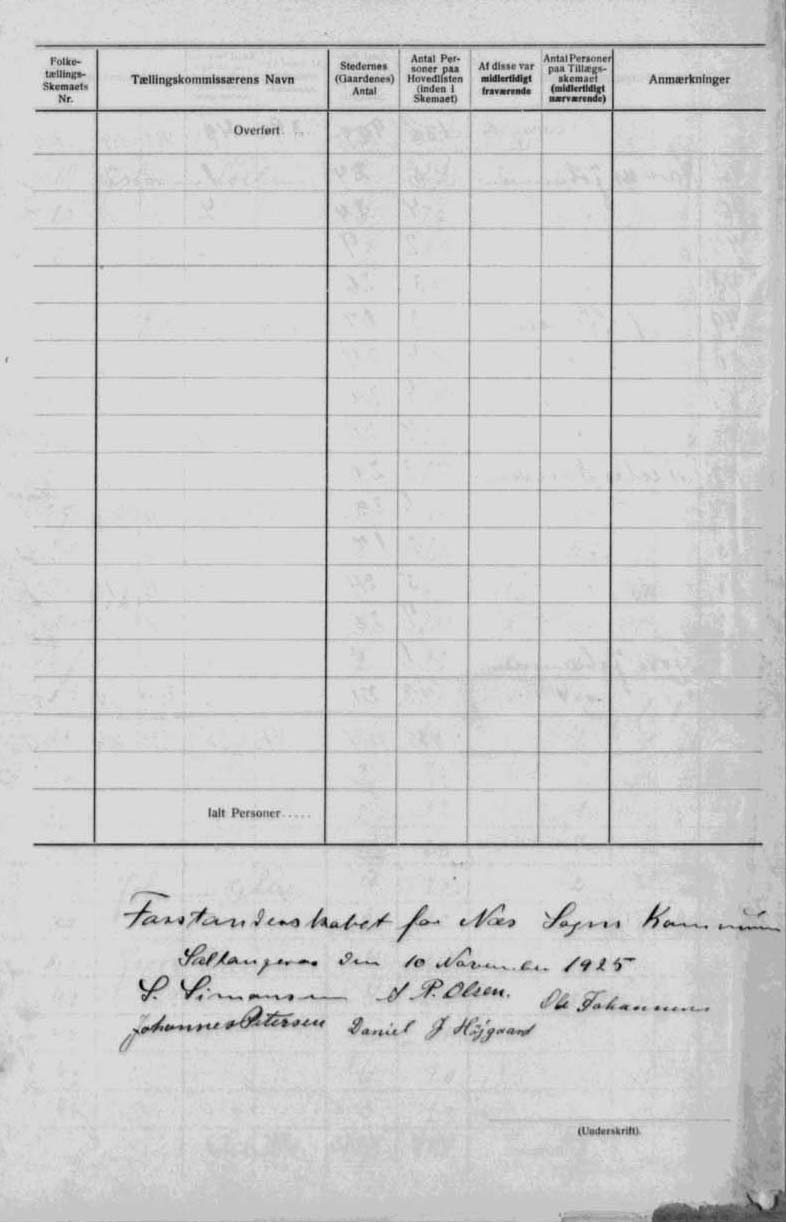 Folke-
tællings-
Skemaets
Nr.
Tællingskommissærens Navn
Stedernes
(Gaardenes)
Antal
Antal Per-
soner paa
Hovedlisten
(inden i
Skemaet)
Af disse var
midlertidigt
fraværende
Antal Personer
paa Tillægs-
skemaet
(midlertidigt
nærværende)
Anmærkninger
Overført ...
Ialt Personer .....
Forstanderskabet for Næs Sogns Kommune
Saltangeraa den 10 November 1925
S. Simonsen J P. Olsen. Ole Johannesen
Johannes Petersen Daniel J Højgaard
(Underskrift).